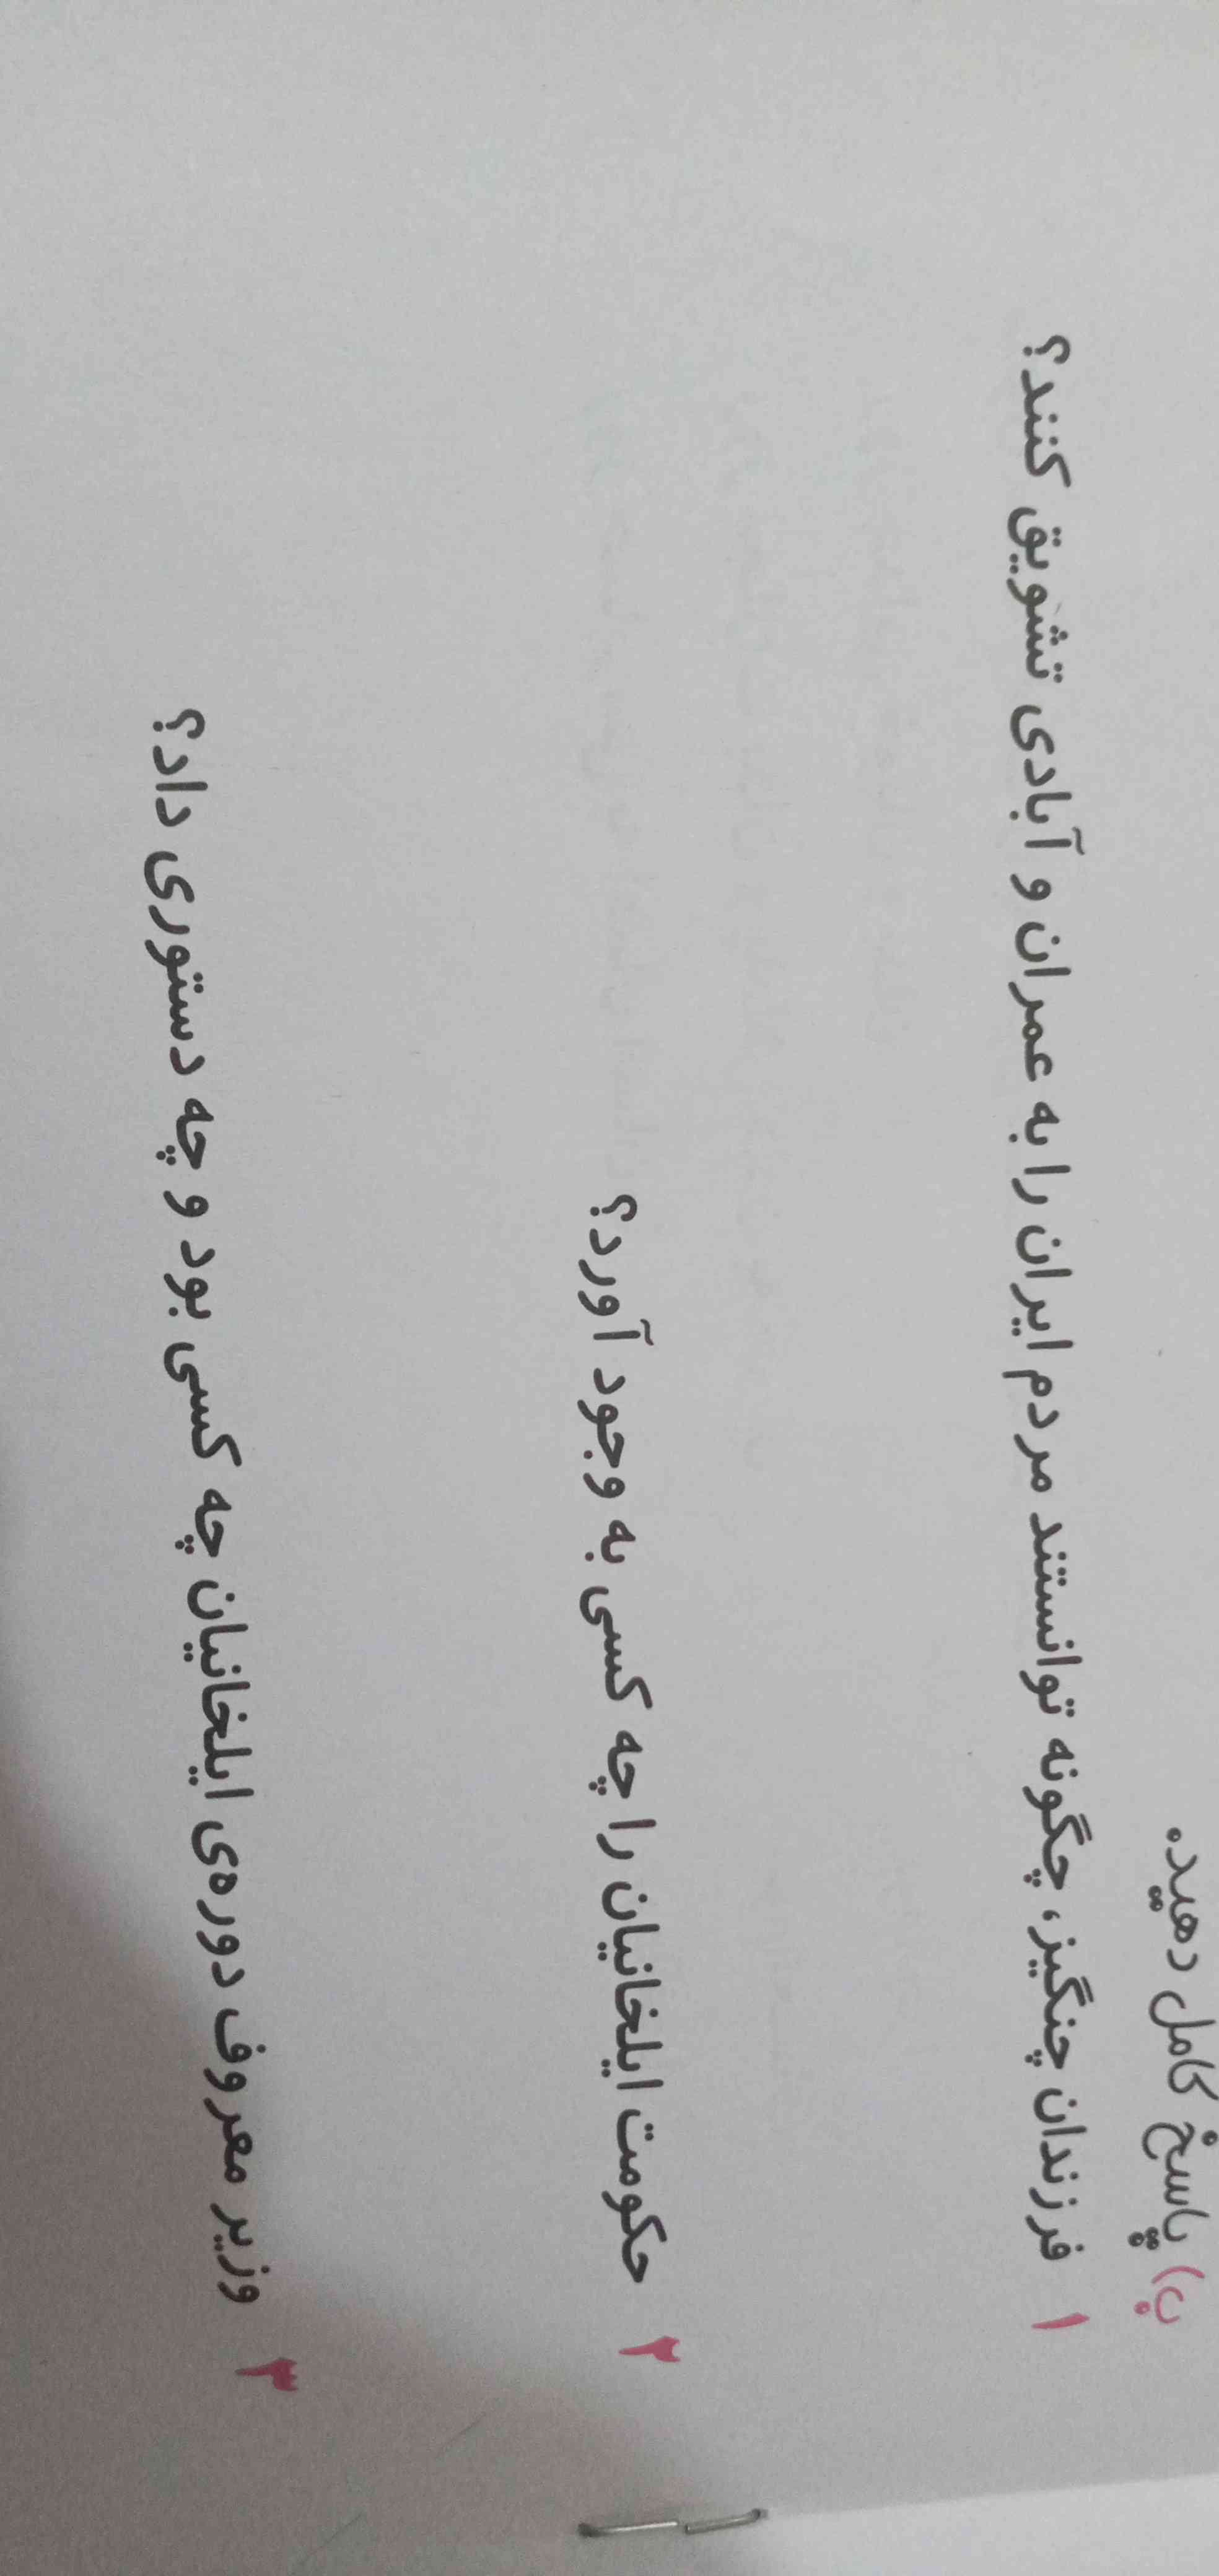 ب) پاسخ کامل دهید.
۱ فرزندان چنگیز، چگونه توانستند مردم ایران را به عمران و آبادی تشویق کنند؟
۲ حکومت ایلخانیان را چه کسی به وجود آورد؟
۳ وزیر معروف دوره‌ی ایلخانیان چه کسی بود و چه دستوری داد؟